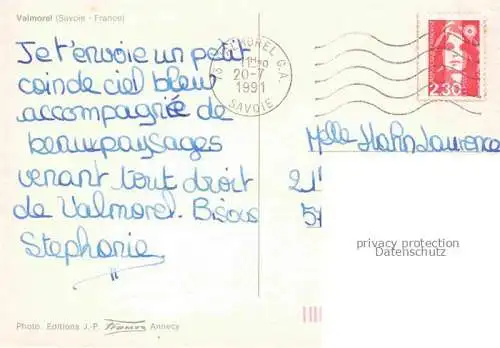 Valmorel (Savoie - France)
Je t'envoie un petit
coin de ciel bleu
accompagnée de
beaux paysages
venant tout droit
de Valmorel. Bisous
Stephanie
11H
20-7
1991
SAVOIE
2,30
Melle Hahn Laurence
21
57
privacy protection
Datenschutz
Photo. Editions J.-P. Annecy